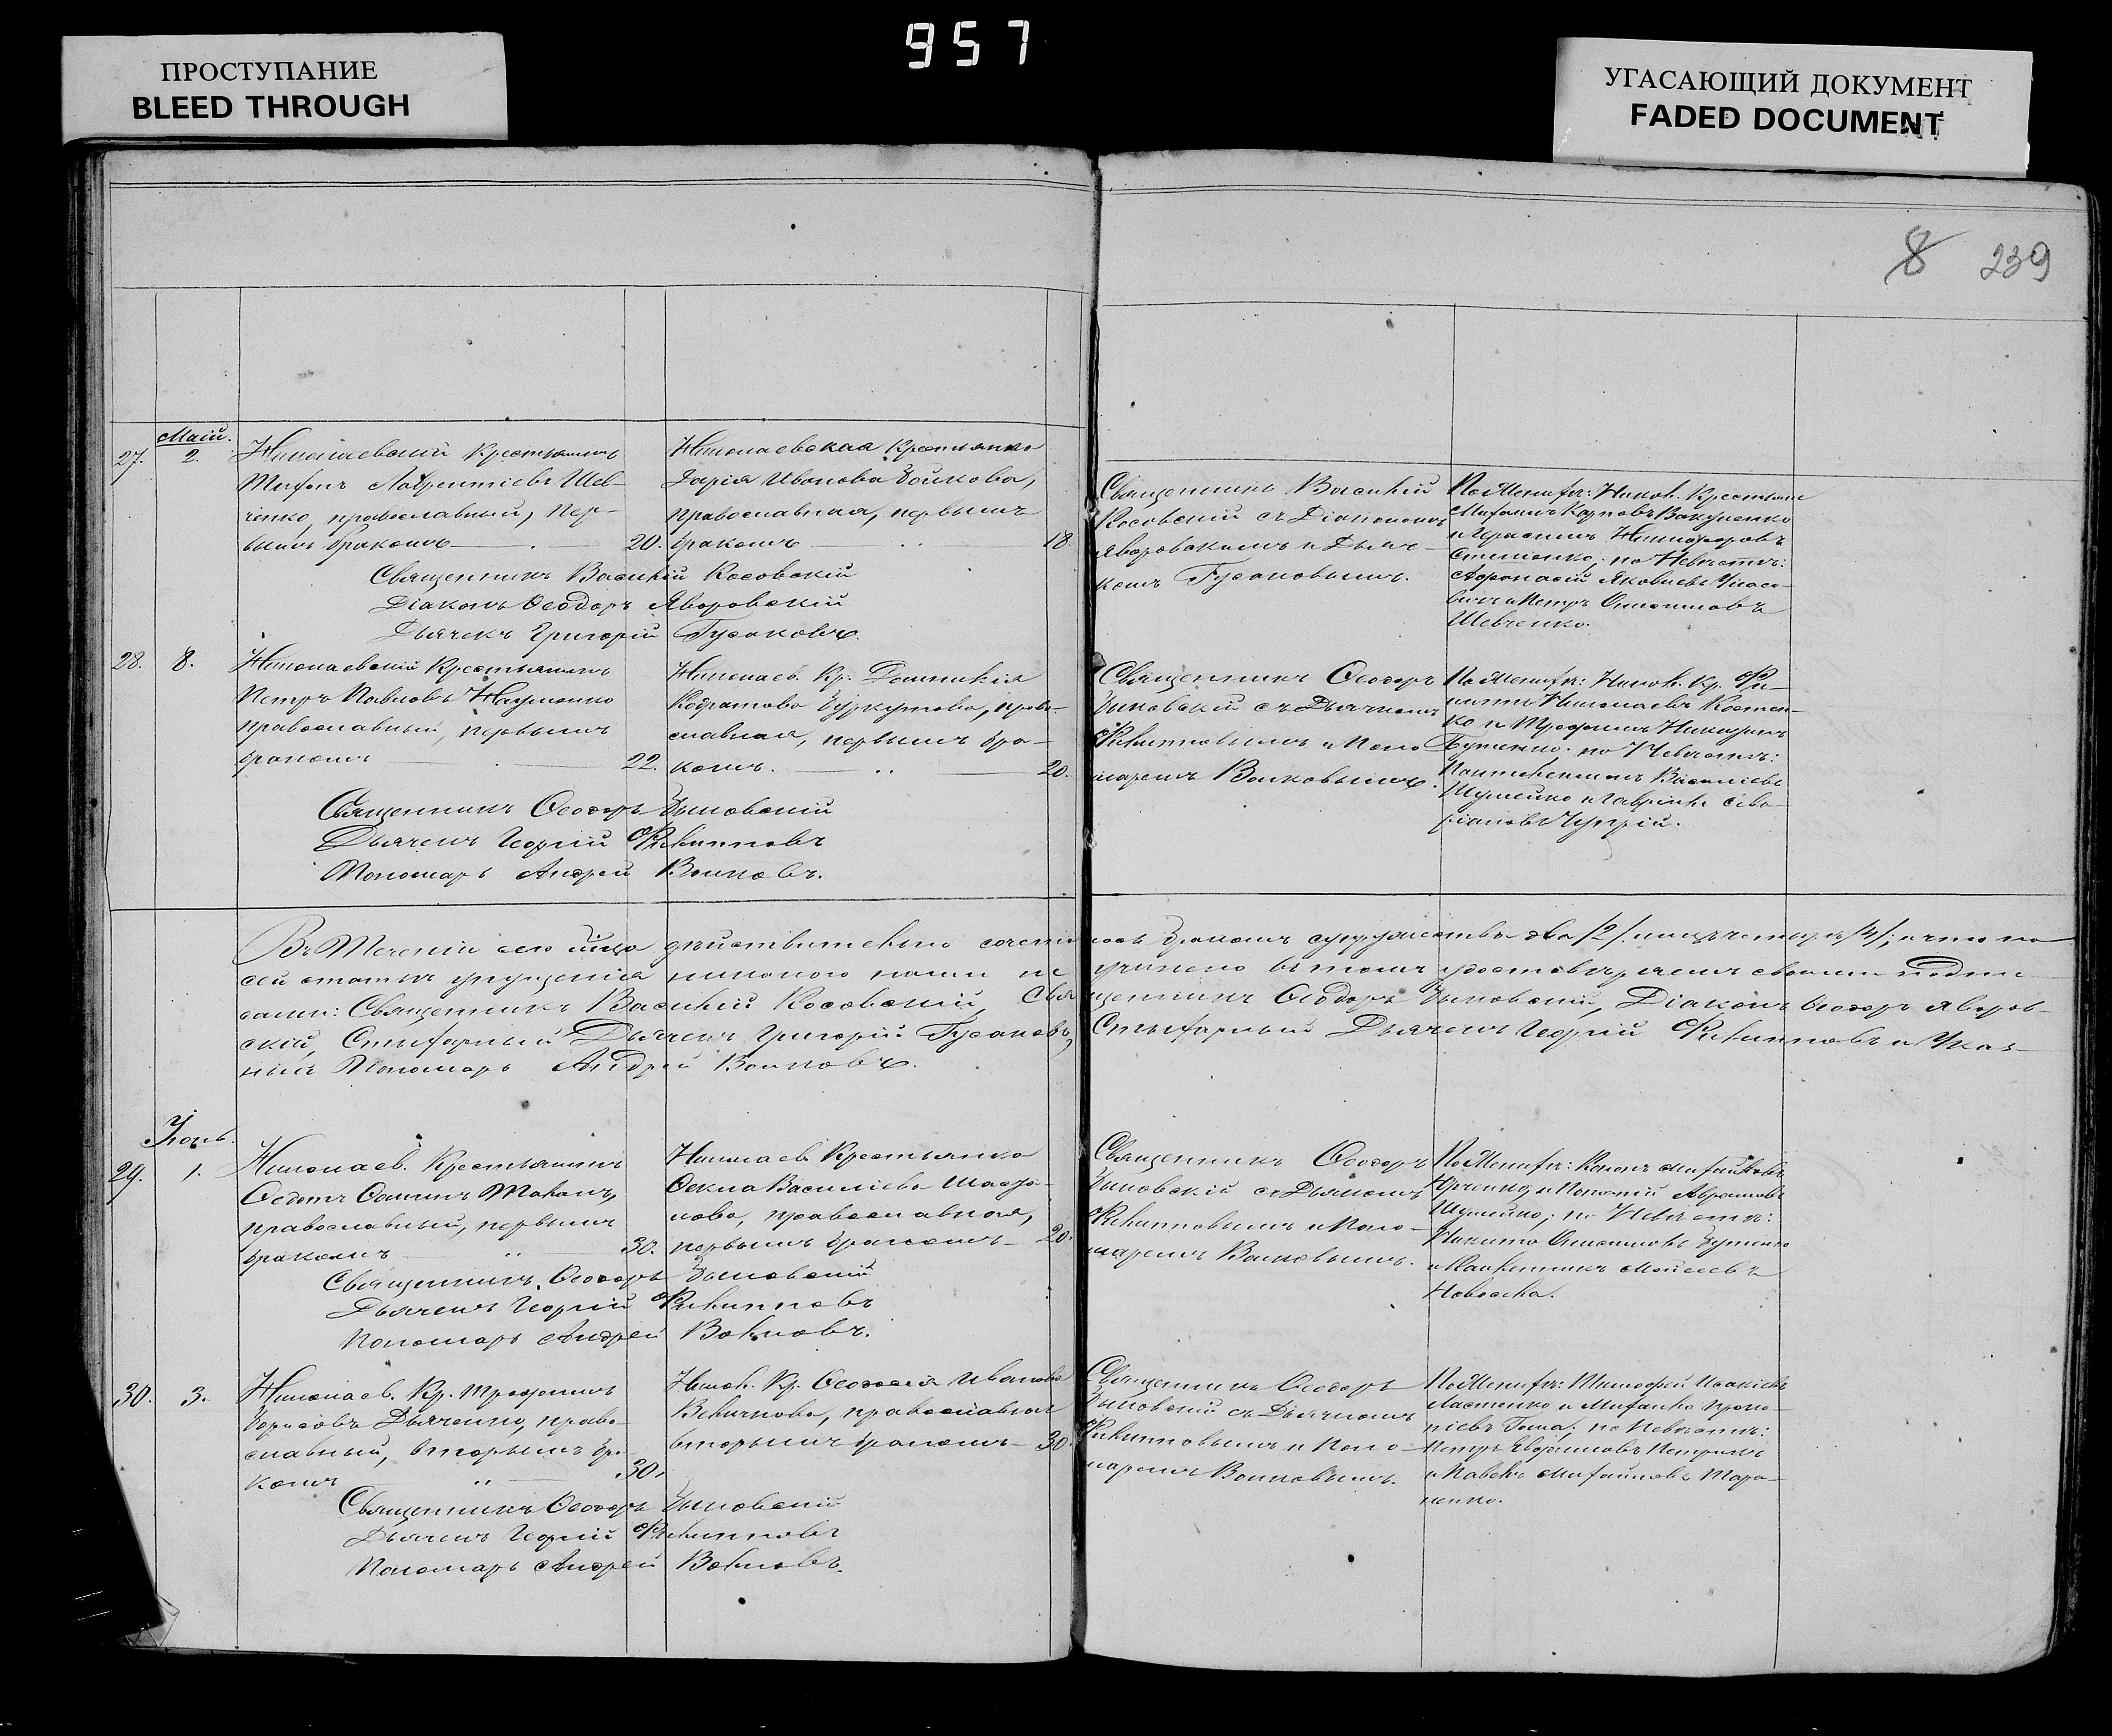 957
ПРОСТУПАНИЕ
BLEED THROUGH
УГАСАЮЩИЙ ДОКУМЕНТ
FADED DOCUMENT
8 239
Маій.
27. 2. Николаевскій Крестьянинъ
Лаврентіевъ Шев-
ченко, православный, пер-
вымъ бракомъ 20.
Николаевская Крестьянка
Дарія Иванова Бойкова,
православная, первымъ
бракомъ 18.
Священникъ Василій
Косовскій съ Діакономъ
Яворовскимъ и Дьяч-
комъ Гусаковымъ.
По Жениху: Никол. Крестьяне
Карповъ Вакуленко
и Герасимъ Никифоровъ
по Невѣстѣ:
Афанасій Яковлевъ
и Петръ Онисимовъ
Шевченко.
Священникъ Василій Косовскій
Діаконъ Ѳеодоръ Яворовскій
Дьячекъ Григорій Гусаковъ.
28. 8. Николаевскій Крестьянинъ
Петръ Павловъ Науменко
православный, первымъ
бракомъ 22.
Николаев. Кр. Домникія
Кодратова Буркутова, право-
славная, первымъ бра-
комъ. 20.
Священникъ Ѳеодоръ
съ Дьячкомъ
Филипповымъ и Поно-
маремъ Волковымъ.
По Жениху: Никол. Кр. Фи-
Николаевъ Костен-
ко и Трофимъ
Бутенко; по Невѣстѣ:
Пантелеимонъ Василіевъ
Шулейко и Гавріилъ Севе-
ріановъ
Священникъ Ѳеодоръ
Дьячекъ Георгій Филипповъ
Пономарь Андрей Волковъ.
Въ теченіи сего мѣсяца дѣйствительно сочета лось бракомъ супружествъ два /2/ лицъ четыре /4/; и что по
сей статьѣ упущенія никакого нами не учинено въ томъ удостовѣряемъ своими подпи-
сами: Священникъ Василій Косовскій, Свя щенникъ Ѳеодоръ Діаконъ Ѳеодоръ Яворов-
скій, Стихарный Дьячекъ Григорій Гусаковъ, Стихарный Дьячекъ Георгій Филипповъ и Указ-
ный Пономарь Андрей Волковъ.
Іюнь.
29. 1. Николаев. Крестьянинъ
Ѳедотъ Ѳоминъ
православный, первымъ
бракомъ 30.
Николаев. Крестьянка
Ѳекла Василіева
православная,
первымъ бракомъ 20.
Священникъ Ѳеодоръ
съ Дьячкомъ
Филипповымъ и Поно-
маремъ Волковымъ.
По Жениху: Кононъ Михайловъ
Авраамовъ
Шулейко; по Невѣстѣ:
Никита Онисимовъ Бутенко
Моисеевъ
Священникъ Ѳеодоръ
Дьячекъ Георгій Филипповъ
Пономарь Андрей Волковъ.
30. 3. Николаев. Кр. Трофимъ
Борисовъ Дьяченко, право-
славный, вторымъ бра-
комъ 30.
Никол. Кр. Ѳеодосія Иванова
Величкова, православная
вторымъ бракомъ 30.
Священникъ Ѳеодоръ
съ Дьячкомъ
Филипповымъ и Поно-
маремъ Волковымъ.
По Жениху: Тимофей Исакіевъ
Ластенко и Михаилъ Проко-
піевъ Гома; по Невѣстѣ:
Петръ Евфимовъ Петрикъ
и Павелъ Михайловъ Тара-
ненко.
Священникъ Ѳеодоръ
Дьячекъ Георгій Филипповъ
Пономарь Андрей Волковъ.